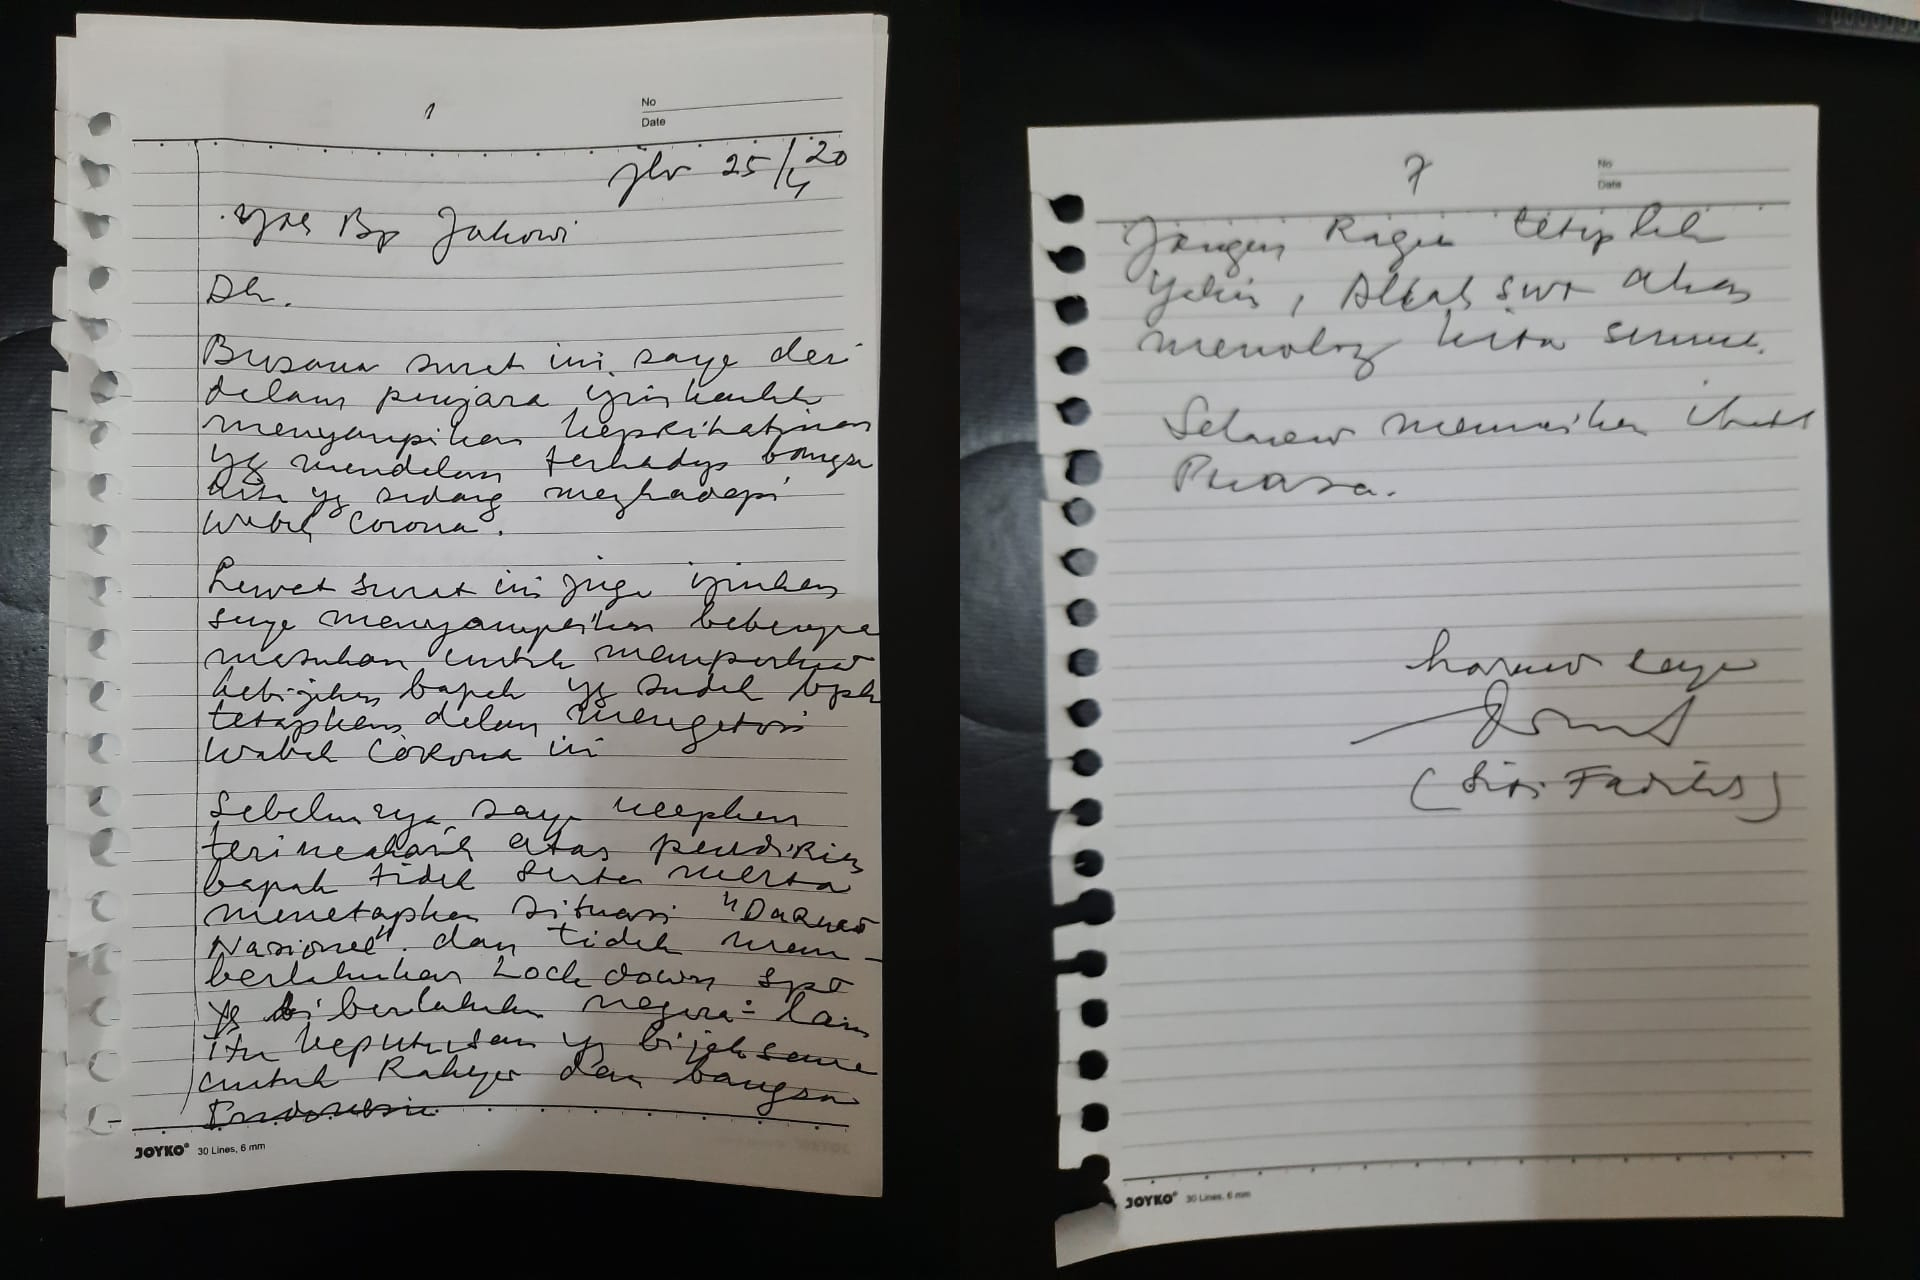 1
No
Date
jkt 25/4 20
Yth Bp Jokowi
Dh.
Bersama surat ini, saya dari
dalam penjara izinkanlah
menyampaikan keprihatinan
yg mendalam terhadap bangsa
kita yg sedang menghadapi
Wabah Corona.
Lewat surat ini juga izinkan
saya menyampaikan beberapa
masukan untuk memperkuat
kebijakan bapak yg sudah bpk
tetapkan dalam mengatasi
Wabah Corona ini
Sebelumnya, saya ucapkan
terimakasih atas pendirian
bapak tidak serta merta
menetapkan situasi "Darurat
Nasional". dan tidak mem-
berlakukan Lock down spt
yg di berlakukan negara = lain
itu keputusan yg bijaksana
untuk Rakyat dan bangsa
Indonesia
JOYKO 30 Lines, 6 mm
7
No
Date
Jangan Ragu tetaplah
Yakin, Allah swt akan
menolong kita semua.
Selamat menunaikan ibadah
Puasa.
hormat saya
(Siti Fadilah)
JOYKO 30 Lines, 6 mm